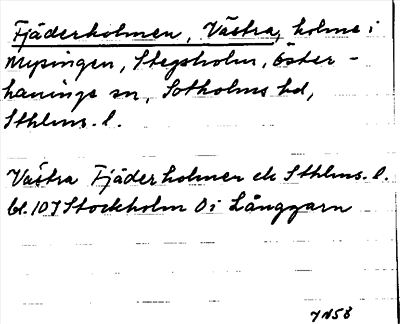 Fjäderholmen, Västra, holme i
Mysingen, Stegsholm, Öster-
haninge sn, Sotholms hd,
Sthlms. l.
Västra Fjäderholmen ek Sthlms. l.
bl. 107 Stockholm O i Långgarn